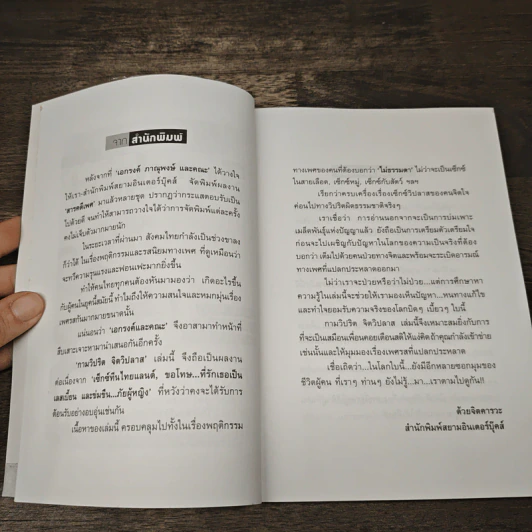 จาก สำนักพิมพ์
หลังจากที่ 'เอกรงค์ ภาณุพงษ์ และคณะ' ได้วางใจ
ให้เรา-สำนักพิมพ์สยามอินเตอร์บุ๊คส์ จัดพิมพ์ผลงาน
'สารคดีเพศ' มาแล้วหลายชุด ปรากฏว่ากระแสตอบรับเป็น
ไปด้วยดี จนทำให้สามารถวางใจได้ว่าการจัดพิมพ์แต่ละครั้ง
คงไม่เจ็บตัวมากมายนัก
ในระยะเวลาที่ผ่านมา สังคมไทยกำลังเป็นช่วงขาลง
ก็ว่าได้ ในเรื่องพฤติกรรมและรสนิยมทางเพศ ที่ดูเหมือนว่า
จะทวีความรุนแรงและฟอนเฟะมากยิ่งขึ้น
ทำให้คนไทยทุกคนต้องหันมามองว่า เกิดอะไรขึ้น
กับผู้คนในยุคนี้สมัยนี้ ทำไมถึงให้ความสนใจและหมกมุ่นเรื่อง
เพศรสกันมากมายขนาดนั้น
แน่นอนว่า 'เอกรงค์และคณะ' จึงอาสามาทำหน้าที่
สืบเสาะเจาะหามานำเสนอกันอีกครั้ง
'กามวิปริต จิตวิปลาส' เล่มนี้ จึงถือเป็นผลงาน
ต่อเนื่องจาก 'เซ็กซ์ทีนไทยแลนด์, ขอโทษ...ที่รักเธอเป็น
เลสเบี้ยน และข่มขืน...ภัยผู้หญิง' ที่หวังว่าคงจะได้รับการ
ต้อนรับอย่างอบอุ่นเช่นกัน
เนื้อหาของเล่มนี้ ครอบคลุมไปทั้งในเรื่องพฤติกรรม
ทางเพศของคนที่ต้องบอกว่า 'ไม่ธรรมดา' ไม่ว่าจะเป็นเซ็กซ์
ในสายเลือด, เซ็กซ์หมู่, เซ็กซ์กับสัตว์ ฯลฯ
เรียกว่าครบเครื่องเรื่องเซ็กซ์วิปลาสของคนคิดใจ
ค่อนไปทางวิปริตผิดธรรมชาติจริงๆ
เราเชื่อว่า การอ่านนอกจากจะเป็นการบ่มเพาะ
เมล็ดพันธุ์แห่งปัญญาแล้ว ยังถือเป็นการเตรียมตัวเตรียมใจ
ก่อนจะไปเผชิญกับปัญหาในโลกของความเป็นจริงที่ต้อง
บอกว่า เต็มไปด้วยคนป่วยทางจิตและพร้อมจะระเบิดอารมณ์
ทางเพศที่แปลกประหลาดออกมา
ไม่ว่าเราจะป่วยหรือว่าไม่ป่วย...แต่การศึกษาหา
ความรู้ในเล่มนี้จะช่วยให้เรามองเห็นปัญหา...หนทางแก้ไข
และทำใจยอมรับความจริงของโลกบิดๆ เบี้ยวๆ ใบนี้
กามวิปริต จิตวิปลาส เล่มนี้จึงเหมาะสมยิ่งกับการ
ที่จะเป็นเสมือนเพื่อนคอยเตือนสติให้แง่คิดถ้าคุณกำลังเข้าข่าย
เช่นนั้นและให้มุมมองเรื่องเพศรสที่แปลกประหลาด
เชื่อเถิดว่า...ในโลกใบนี้...ยังมีอีกหลายซอกมุมของ
ชีวิตผู้คน ที่เราๆ ท่านๆ ยังไม่รู้...มา...เราตามไปดูกัน!!
ด้วยจิตคารวะ
สำนักพิมพ์สยามอินเตอร์บุ๊คส์